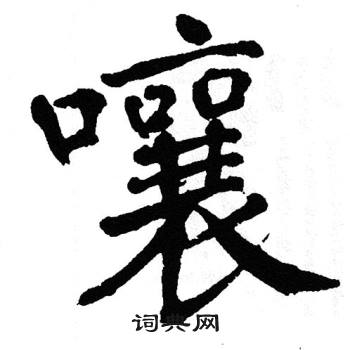 嚷
词典网